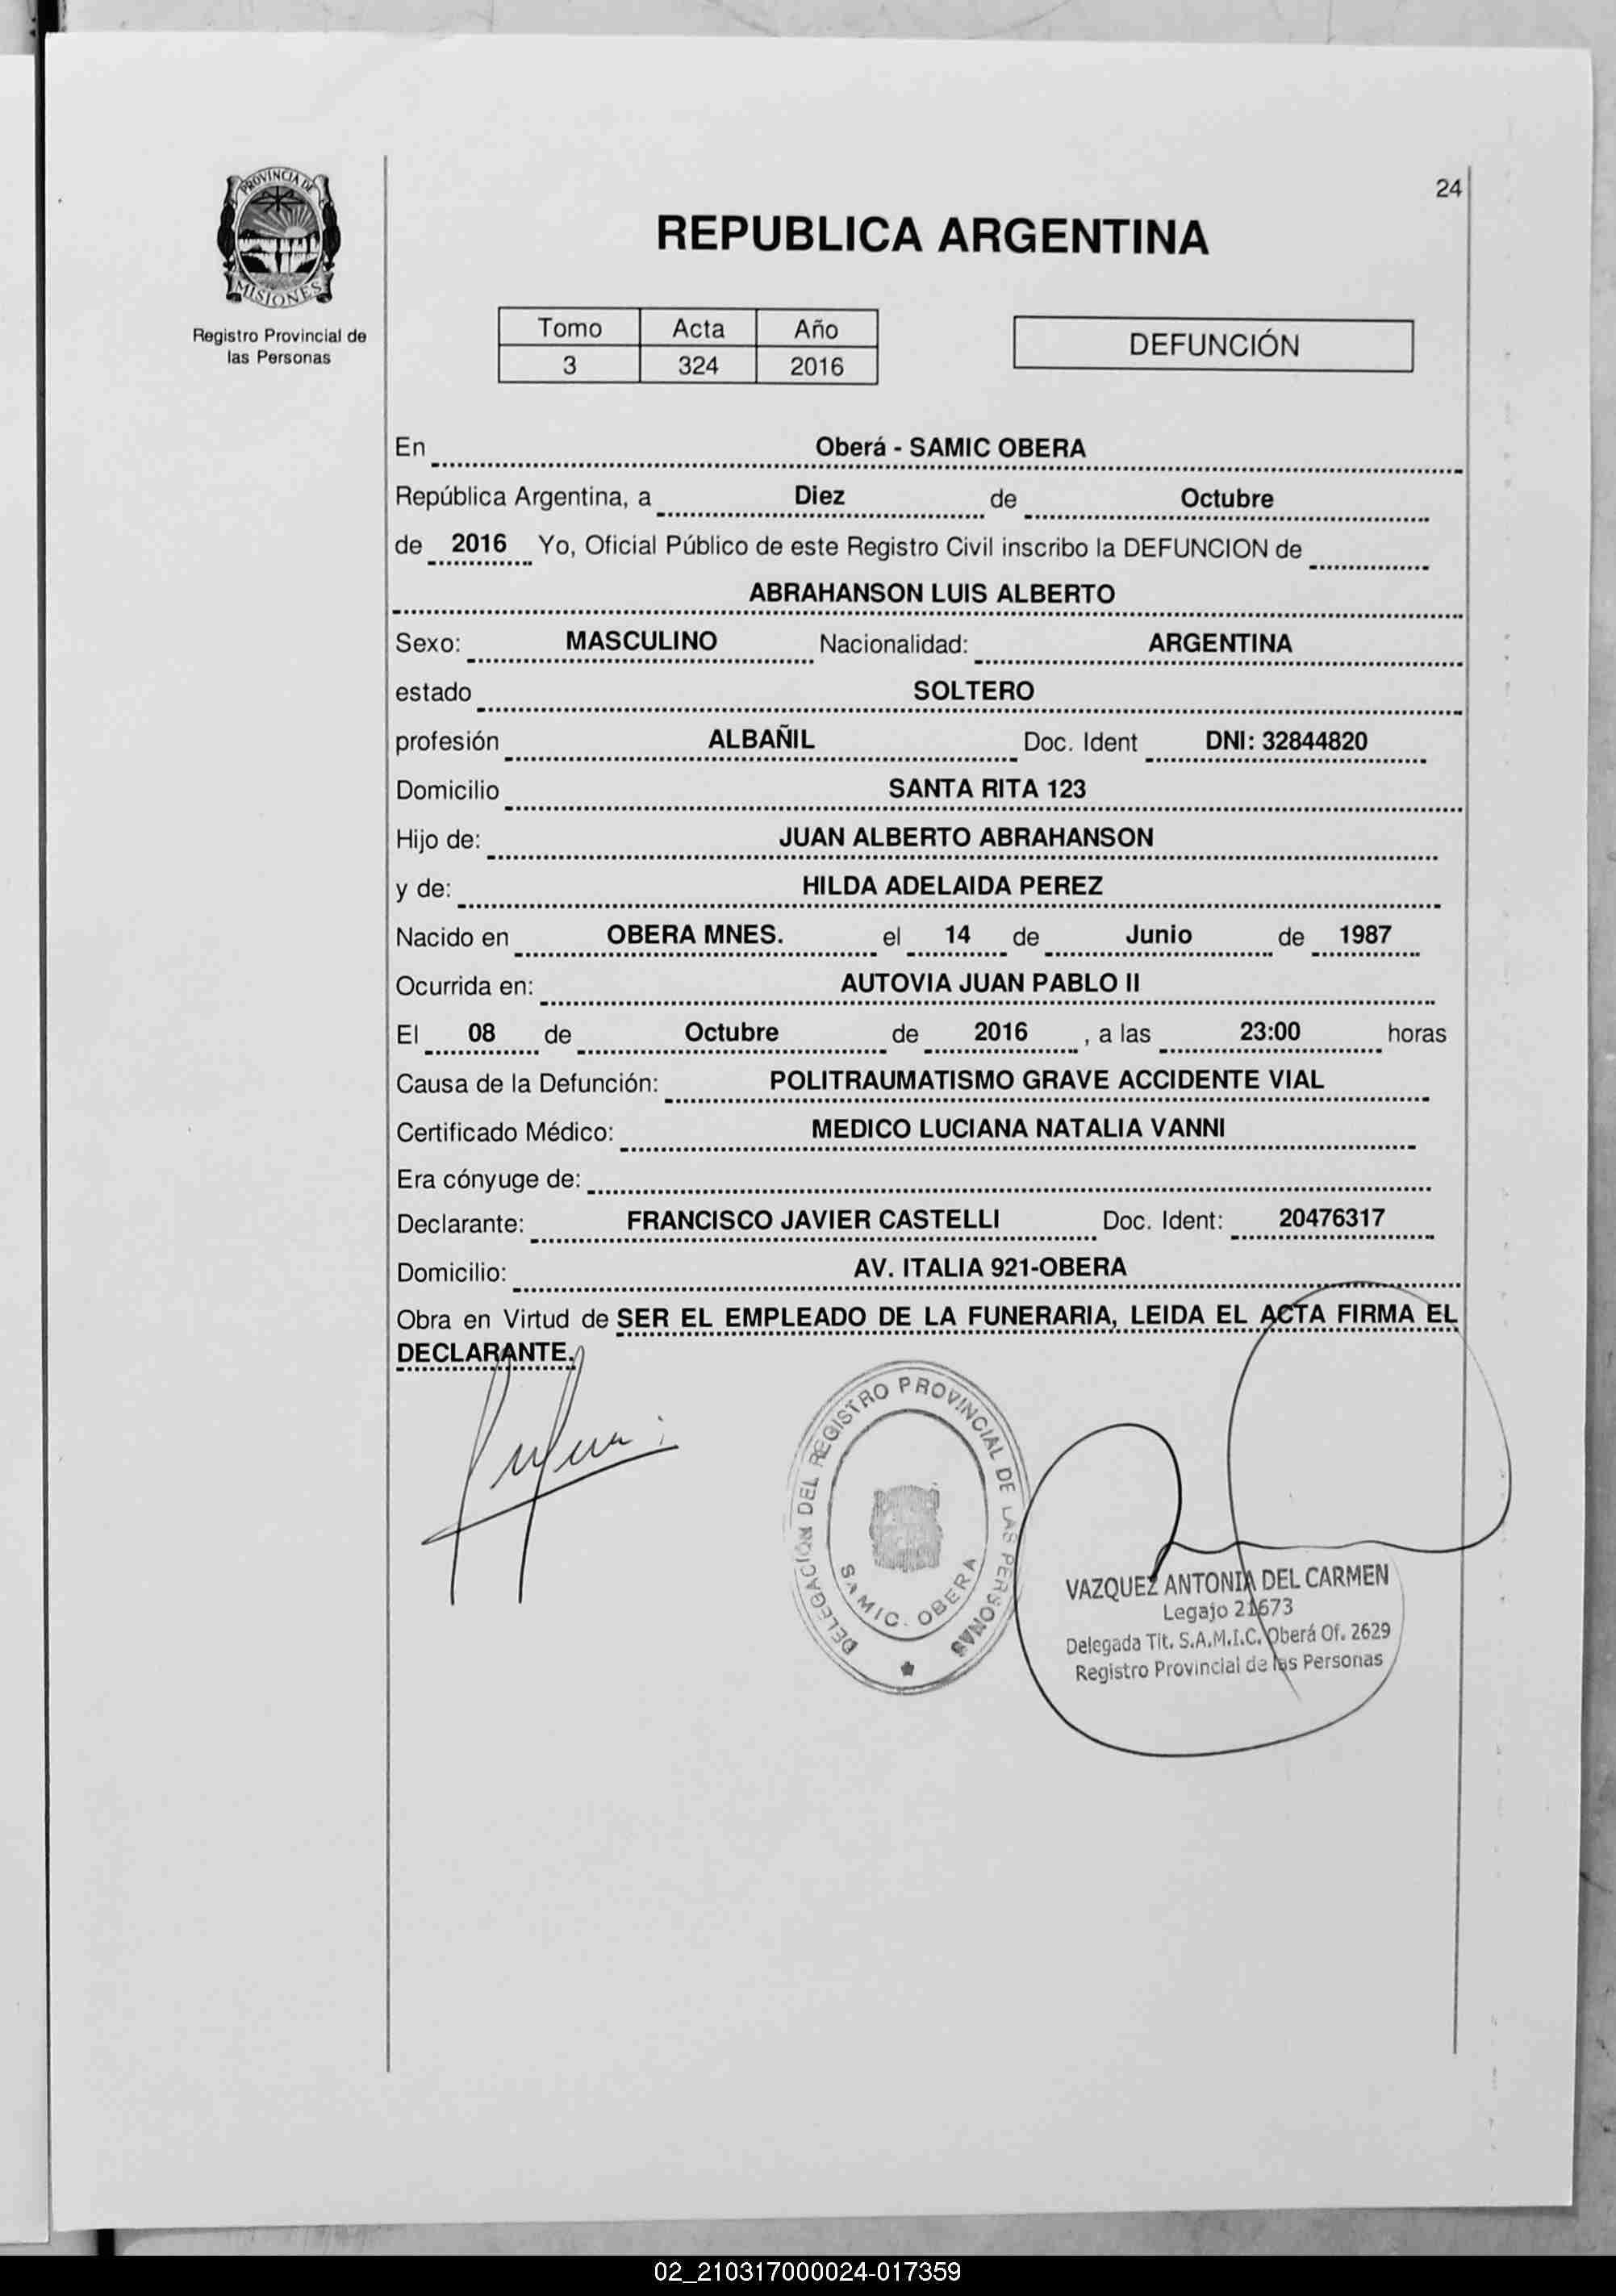 24
PROVINCIA DE
MISIONES
Registro Provincial de
las Personas
REPUBLICA ARGENTINA
Tomo Acta Año
3 324 2016
DEFUNCIÓN
En Oberá - SAMIC OBERA
República Argentina, a Diez de Octubre
de 2016 Yo, Oficial Público de este Registro Civil inscribo la DEFUNCION de
ABRAHANSON LUIS ALBERTO
Sexo: MASCULINO Nacionalidad: ARGENTINA
estado SOLTERO
profesión ALBAÑIL Doc. Ident DNI: 32844820
Domicilio SANTA RITA 123
Hijo de: JUAN ALBERTO ABRAHANSON
y de: HILDA ADELAIDA PEREZ
Nacido en OBERA MNES. el 14 de Junio de 1987
Ocurrida en: AUTOVIA JUAN PABLO II
El 08 de Octubre de 2016 , a las 23:00 horas
Causa de la Defunción: POLITRAUMATISMO GRAVE ACCIDENTE VIAL
Certificado Médico: MEDICO LUCIANA NATALIA VANNI
Era cónyuge de:
Declarante: FRANCISCO JAVIER CASTELLI Doc. Ident: 20476317
Domicilio: AV. ITALIA 921-OBERA
Obra en Virtud de SER EL EMPLEADO DE LA FUNERARIA, LEIDA EL ACTA FIRMA EL
DECLARANTE.
DELEGACIÓN DEL REGISTRO PROVINCIAL DE LAS PERSONAS
SAMIC. OBERA
VAZQUEZ ANTONIA DEL CARMEN
Legajo 21673
Delegada Tit. S.A.M.I.C. Oberá Of. 2629
Registro Provincial de las Personas
02_210317000024-017359